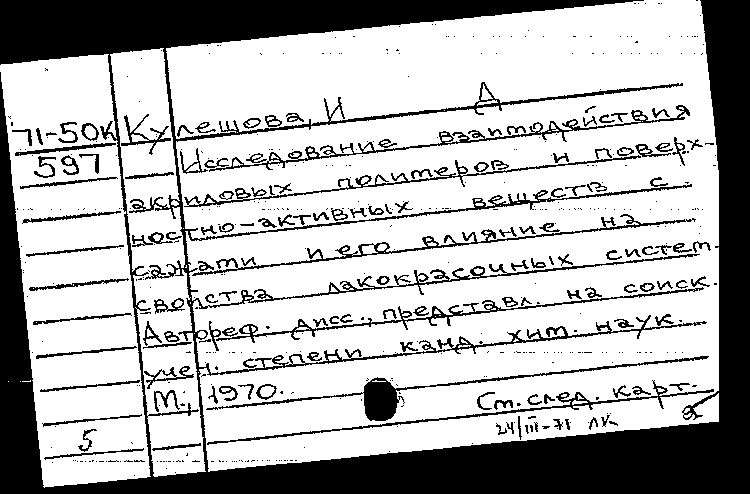 71-50к Кулешова, И Д
597 Исследование взаимодействия
акриловых полимеров и поверх-
ностно-активных веществ с
сажами и его влияние на
свойства лакокрасочных систем.
Автореф. дисс., представл. на соиск.
учен. степени канд. хим. наук.
М., 1970.
См. след. карт.
5 24/III-71 ЛК